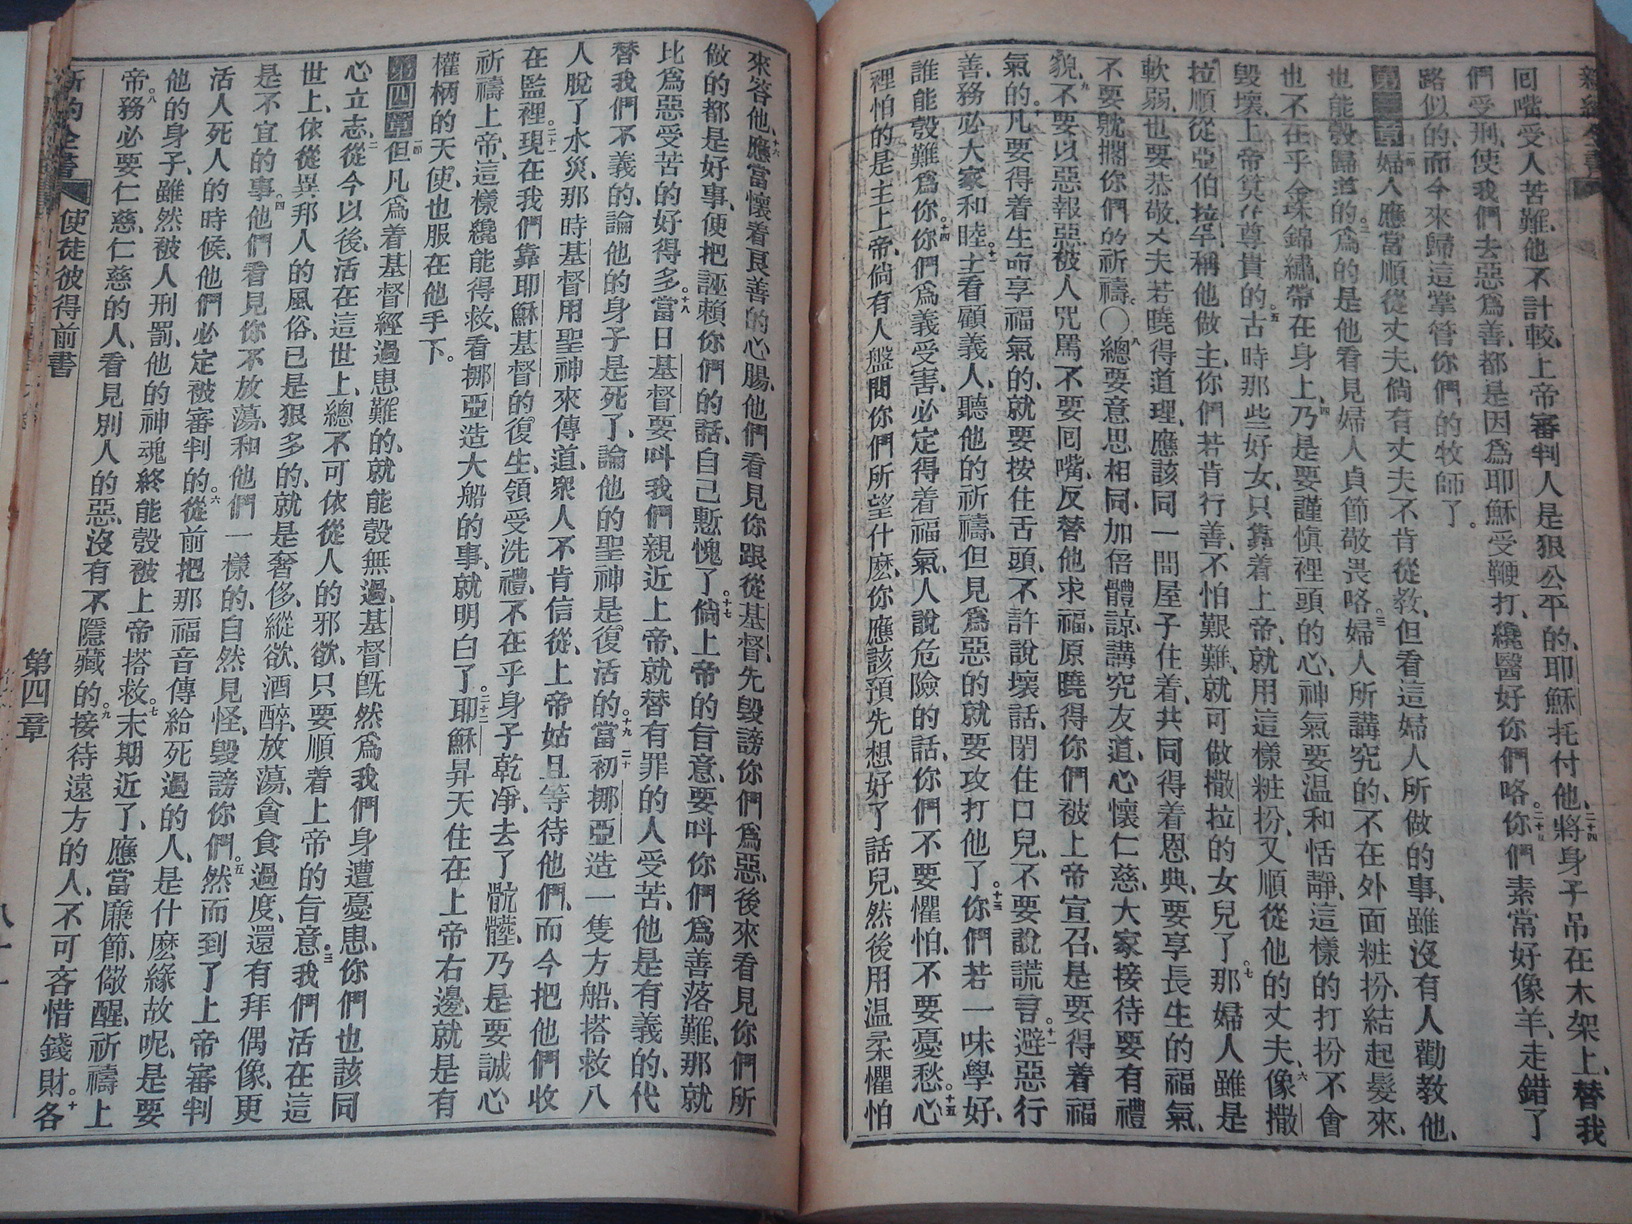 新約全書
回嘴、受人苦難、他不計較、上帝審判人是狠公平的、耶穌托付他、二十四將身子吊在木架上、替我
們受刑、使我們去惡爲善、都是因爲耶穌受鞭打、纔醫好你們咯、二十五你們素常好像羊、走錯了
路似的、而今來歸這掌管你們的牧師了。
第三章一節婦人應當順從丈夫、倘有丈夫不肯從教、但看這婦人所做的事、雖沒有人勸教他、
也能彀歸道的、二爲的是他看見婦人貞節敬畏咯、三婦人所講究的、不在外面粧扮、結起髮來、
也不在乎金珠錦繡、帶在身上、四乃是要謹慎裡頭的心、神氣要溫和恬靜、這樣的打扮不會
毀壞、上帝算作尊貴的、五古時那些好女、只靠着上帝、就用這樣粧扮、又順從他的丈夫、六像撒
拉順從亞伯拉罕、稱他做主、你們若肯行善、不怕艱難、就可做撒拉的女兒了、七那婦人雖是
軟弱、也要恭敬、丈夫若曉得道理、應該同一間屋子住着、共同得着恩典、要享長生的福氣、
不要躭擱你們的祈禱、〇八總要意思相同、加倍體諒、講究友道、心懷仁慈、大家接待、要有禮
貌、九不要以惡報惡、被人咒罵、不要回嘴、反替他求福、原曉得你們被上帝宣召、是要得着福
氣的、十凡要得着生命享福氣的、就要按住舌頭、不許說壞話、閉住口兒、不要說謊言、十一避惡行
善、務必大家和睦、十二主看顧義人、聽他的祈禱、但見爲惡的、就要攻打他了、十三你們若一味學好、
誰能彀難爲你、十四你們爲義受害、必定得着福氣、人說危險的話、你們不要懼怕、不要憂愁、十五心
裡怕的是主上帝、倘有人盤問你們所望什麽、你應該預先想好了話兒、然後用溫柔懼怕
來答他、十六應當懷着良善的心腸、他們看見你跟從基督、先毀謗你們爲惡、後來看見你們所
做的都是好事、便把誣賴你們的話、自己慙愧了、十七倘上帝的旨意、要呌你們爲善落難、那就
比爲惡受苦的好得多、十八當日基督要呌我們親近上帝、就替有罪的人受苦、他是有義的、代
替我們不義的、論他的身子是死了、論他的聖神是復活的、十九二十當初挪亞造一隻方船、搭救八
人脫了水災、那時基督用聖神來傳道、衆人不肯信從、上帝姑且等待他們、而今把他們收
在監裡、二十一現在我們靠耶穌基督的復生、領受洗禮、不在乎身子乾凈、去了骯髒、乃是要誠心
祈禱上帝、這樣纔能得救、看挪亞造大船的事、就明白了、二十二耶穌昇天住在上帝右邊、就是有
權柄的天使、也服在他手下。
第四章一節但凡爲着基督經過患難的、就能彀無過、基督既然爲我們身遭憂患、你們也該同
心立志、二從今以後、活在這世上、總不可依從人的邪欲、只要順着上帝的旨意、三我們活在這
世上、依從異邦人的風俗、已是狠多的、就是奢侈、縱欲、酒醉、放蕩、貪食過度、還有拜偶像、更
是不宜的事、四他們看見你不放蕩、和他們一樣的、自然見怪、毀謗你們、五然而到了上帝審判
活人死人的時候、他們必定被審判的、六從前把那福音傳給死過的人、是什麽緣故呢、是要
他的身子、雖然被人刑罰、他的神魂終能彀被上帝搭救、七末期近了、應當廉節、儆醒、祈禱上
帝、八務必要仁慈、仁慈的人、看見別人的惡、沒有不隱藏的、九接待遠方的人、不可吝惜錢財、十各
新約全書 使徒彼得前書 第四章